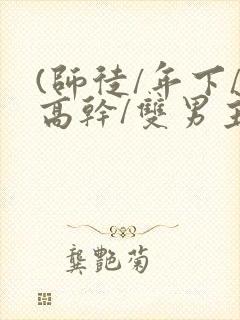 (師徒/年下/
高幹/雙男主
龔艷菊